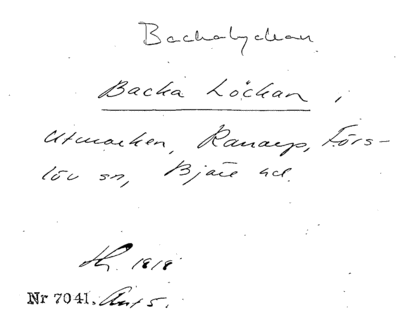 Backalyckan
Backa Löckan,
utmarken, Ranarp, Förs-
löv sn, Bjäre hd.
1919
Nr 7041. Ant 5.